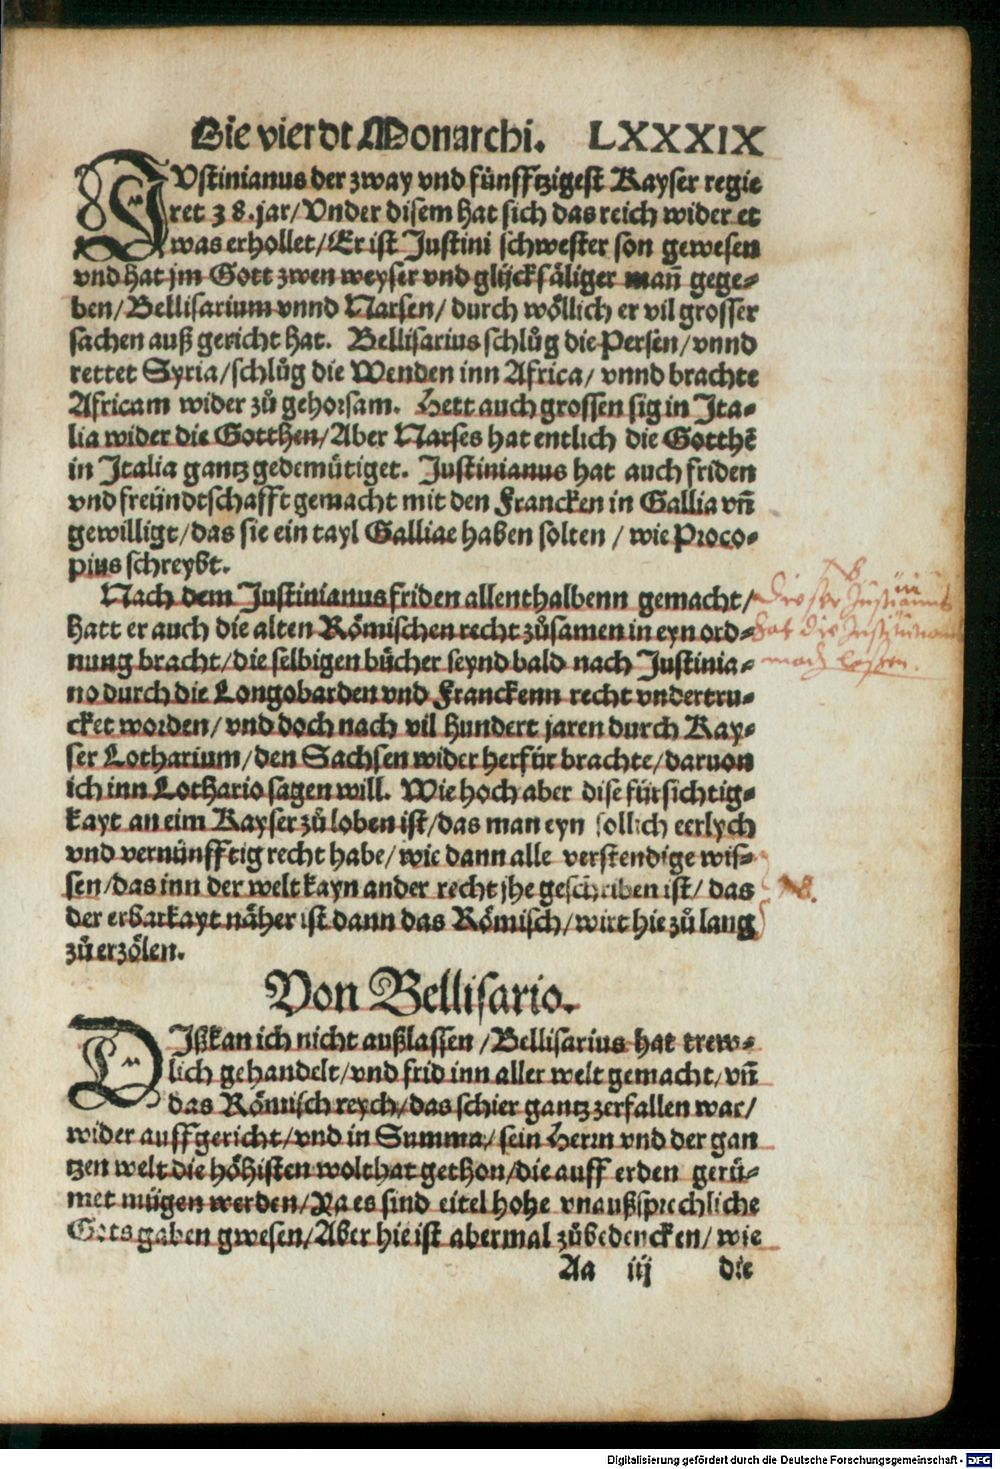 Die vierdt Monarchi. LXXXIX
IVstinianus der zway vnd fünfftzigest Kayser regie
ret 38.jar/Vnder disem hat sich das reich wider et
was erhollet/Er ist Justini schwester son gewesen
vnd hat jm Gott zwen weyser vnd glijcksäliger mañ gege⸗
ben/Bellisarium vnnd Narsen/durch wöllich er vil grosser
sachen auß gericht hat. Bellisarius schlůg die Persen/vnnd
rettet Syria/schlůg die Wenden inn Africa/vnnd brachte
Africam wider zů gehorsam. Hett auch grossen sig in Jta⸗
lia wider die Gotthen/Aber Narses hat entlich die Gotthẽ
in Jtalia gantz gedemütiget. Justinianus hat auch friden
vnd freündtschafft gemacht mit den Francken in Gallia vñ
gewilligt/das sie ein tayl Galliae haben solten/wie Proco⸗
pius schreybt.
Nach dem Justinianus friden allenthalbenn gemacht/
hatt er auch die alten Römischen recht zůsamen in eyn ord⸗
nung bracht/die selbigen bücher seynd bald nach Justinia⸗
no durch die Longobarden vnd Franckenn recht vndertru⸗
cket worden/vnd doch nach vil hundert jaren durch Kay⸗
ser Lotharium/den Sachsen wider herfür brachte/daruon
ich inn Lothario sagen will. Wie hoch aber dise fürsichtig⸗
kayt an eim Kayser zů loben ist/das man eyn sollich eerlych
vnd vernünfftig recht habe/wie dann alle verstendige wis⸗
sen/das inn der welt kayn ander recht jhe geschriben ist/das
der erbarkayt näher ist dann das Römisch/wirt hie zů lang
zů erzölen.
NB
Dieser Justinianus
hat die Institutiones
mach lassen.
NB.
Von Bellisario.
DIßkan ich nicht außlassen/Bellisarius hat trew⸗
lich gehandelt/vnd frid inn aller welt gemacht/vñ
das Römisch reych/das schier gantz zerfallen war/
wider auffgericht/vnd in Summa/sein Herrn vnd der gan
tzen welt die höhisten wolthat gethon/die auff erden gerü⸗
met mügen werden/Ya es sind eitel hohe vnaußsprechliche
Gots gaben gwesen/Aber hie ist abermal zůbedencken/wie
Aa iij die
Digitalisierung gefördert durch die Deutsche Forschungsgemeinschaft - DFG